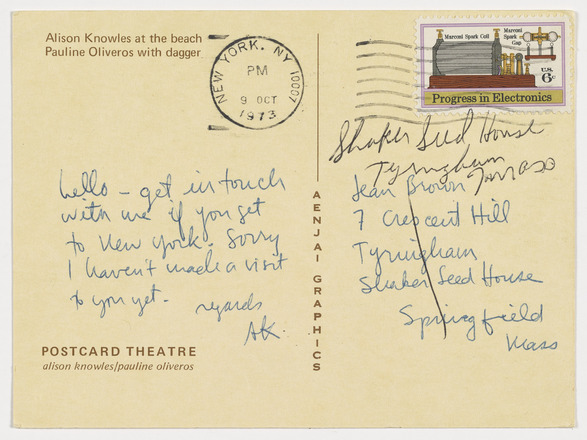 Alison Knowles at the beach
Pauline Oliveros with dagger
NEW YORK, NY 10007
PM
9 OCT
1973
Marconi Spark Coil
Marconi Spark Gap
U.S. 6c
Progress in Electronics
Shaker Seed House
Tyringham
hello – get in touch
with me if you get
to New York. Sorry
I haven't made a visit
to you yet.
regards
AK.
AENJAI GRAPHICS
Jean Brown
7 Crescent Hill
Tyringham
Shaker Seed House
Springfield
Mass
POSTCARD THEATRE
alison knowles/pauline oliveros